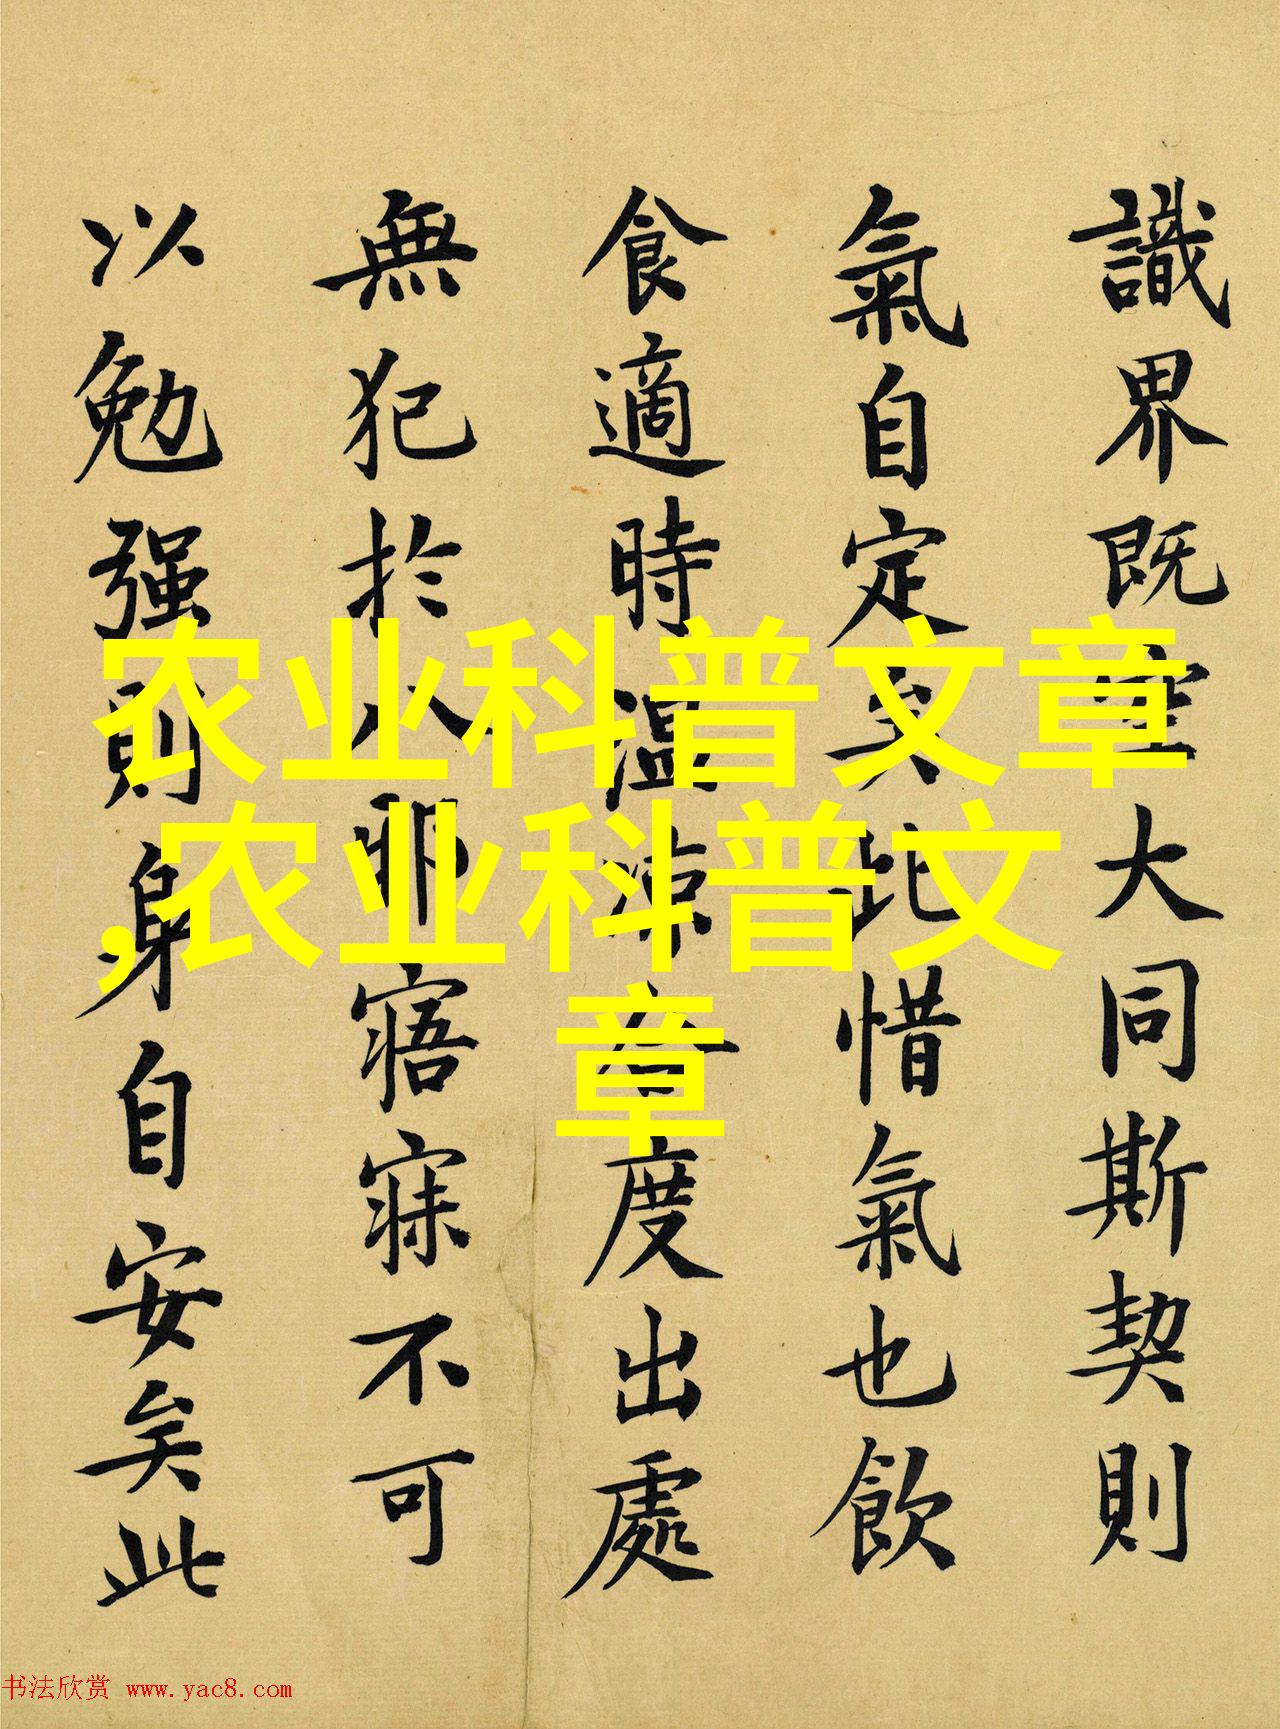 識界既空大同斯契則
氣自定矣此惜氣也飲
食適時溫涼合度出處
無犯於八邪寤寐不可
以勉强則身自安矣此
农业科普文章
,农业科普文
章
书法欣赏 www.yac8.com